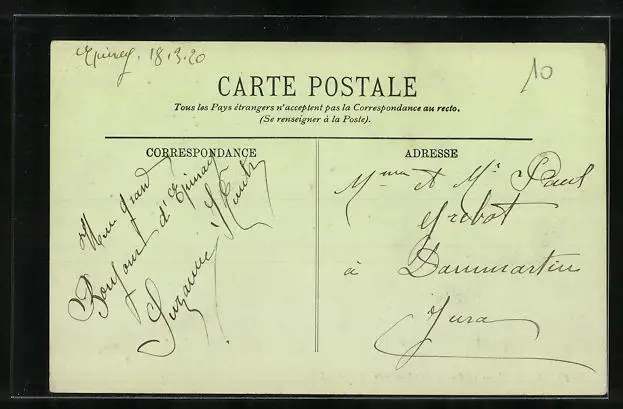 Epinay, 18.9.20
10
CARTE POSTALE
Tous les Pays étrangers n'acceptent pas la Correspondance au recto.
(Se renseigner à la Poste).
CORRESPONDANCE
Un grand
Bonjour d'Epinay
Suzanne
ADRESSE
Mme et Mr Paul
Grebot
à Dammartin
Jura